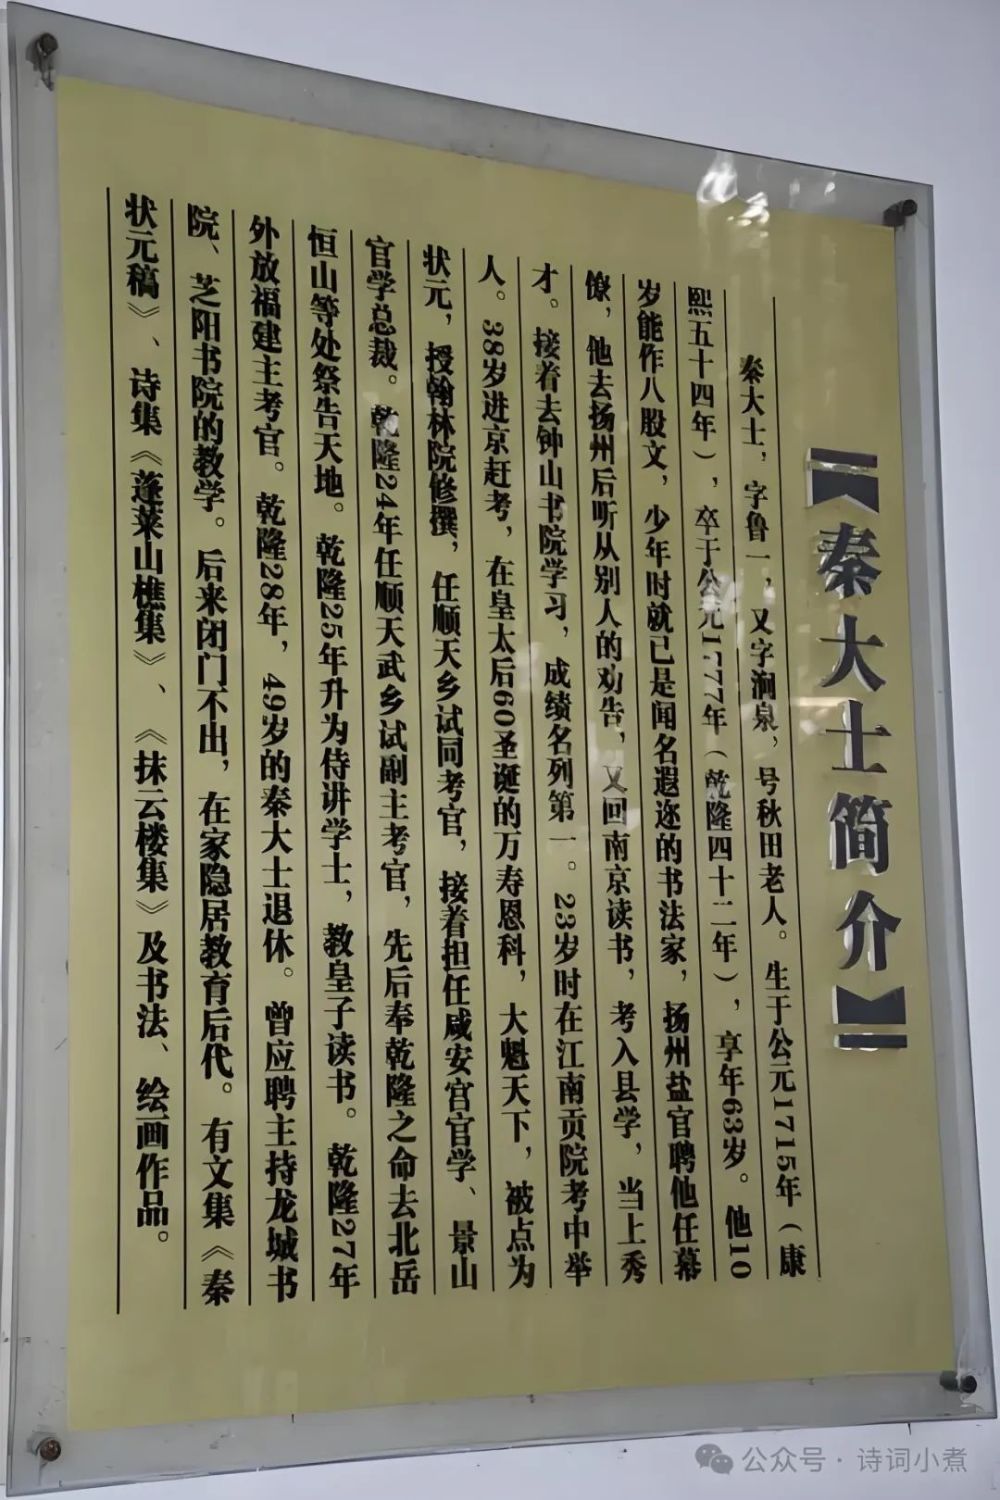 【秦大士简介】
秦大士，字鲁一，又字涧泉，号秋田老人。生于公元1715年（康
熙五十四年），卒于公元1777年（乾隆四十二年），享年63岁。他10
岁能作八股文，少年时就已是闻名遐迩的书法家，扬州盐官聘他任幕
僚，他去扬州后听从别人的劝告，又回南京读书，考入县学，当上秀
才。接着去钟山书院学习，成绩名列第一。23岁时在江南贡院考中举
人。38岁进京赶考，在皇太后60圣诞的万寿恩科，大魁天下，被点为
状元，授翰林院修撰，任顺天乡试同考官，接着担任咸安宫官学、景山
官学总裁。乾隆24年任顺天武乡试副主考官，先后奉乾隆之命去北岳
恒山等处祭告天地。乾隆25年升为侍讲学士，教皇子读书。乾隆27年
外放福建主考官。乾隆28年，49岁的秦大士退休。曾应聘主持龙城书
院、芝阳书院的教学。后来闭门不出，在家隐居教育后代。有文集《秦
状元稿》、诗集《蓬莱山樵集》、《抹云楼集》及书法、绘画作品。
公众号·诗词小煮